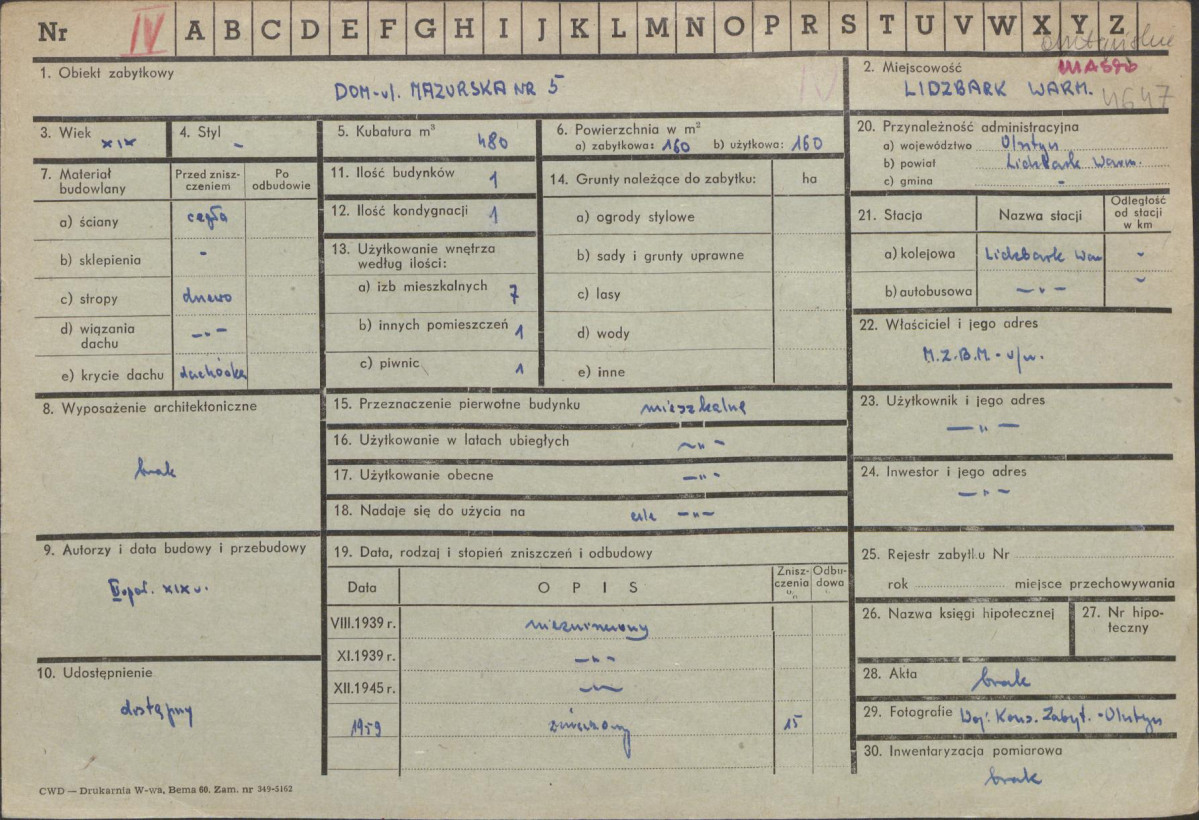 Nr IV A B C D E F G H I J K L M N O P R S T U V W X Y Z
1. Obiekt zabytkowy
DOM - ul. MAZURSKA NR 5
IV
2. Miejscowość
LIDZBARK WARM.
4647
3. Wiek XIX
4. Styl -
5. Kubatura m³ 480
6. Powierzchnia w m²
a) zabytkowa: 160 b) użytkowa: 160
7. Materiał budowlany
Przed zniszczeniem
Po odbudowie
a) ściany cegła
b) sklepienia -
c) stropy drewo
d) wiązania dachu -"-
e) krycie dachu dachówka
8. Wyposażenie architektoniczne
brak
9. Autorzy i data budowy i przebudowy
II poł. XIX w.
10. Udostępnienie
dostępny
11. Ilość budynków 1
12. Ilość kondygnacji 1
13. Użytkowanie wnętrza
według ilości:
a) izb mieszkalnych 7
b) innych pomieszczeń 1
c) piwnic 1
14. Grunty należące do zabytku: ha
a) ogrody stylowe
b) sady i grunty uprawne
c) lasy
d) wody
e) inne
15. Przeznaczenie pierwotne budynku mieszkalne
16. Użytkowanie w latach ubiegłych -"-
17. Użytkowanie obecne -"-
18. Nadaje się do użycia na cele -"-
19. Data, rodzaj i stopień zniszczeń i odbudowy
Data OPIS Zniszczenia Odbudowa
VIII.1939 r. niezniszczony
XI.1939 r. -"-
XII.1945 r. -"-
1959 zniszczony 15
20. Przynależność administracyjna
a) województwo Olsztyn
b) powiat Lidzbark Warm.
c) gmina -
21. Stacja
Nazwa stacji
Odległość
od stacji
w km
a) kolejowa Lidzbark War -
b) autobusowa -"- -
22. Właściciel i jego adres
M.Z.B.M. - w/m.
23. Użytkownik i jego adres
-"-
24. Inwestor i jego adres
-"-
25. Rejestr zabytku Nr
rok miejsce przechowywania
26. Nazwa księgi hipotecznej
27. Nr hipoteczny
28. Akta brak
29. Fotografie Woj. Kons. Zabyt. - Olsztyn
30. Inwentaryzacja pomiarowa
brak
CWD — Drukarnia W-wa, Bema 60. Zam. nr 349-5162